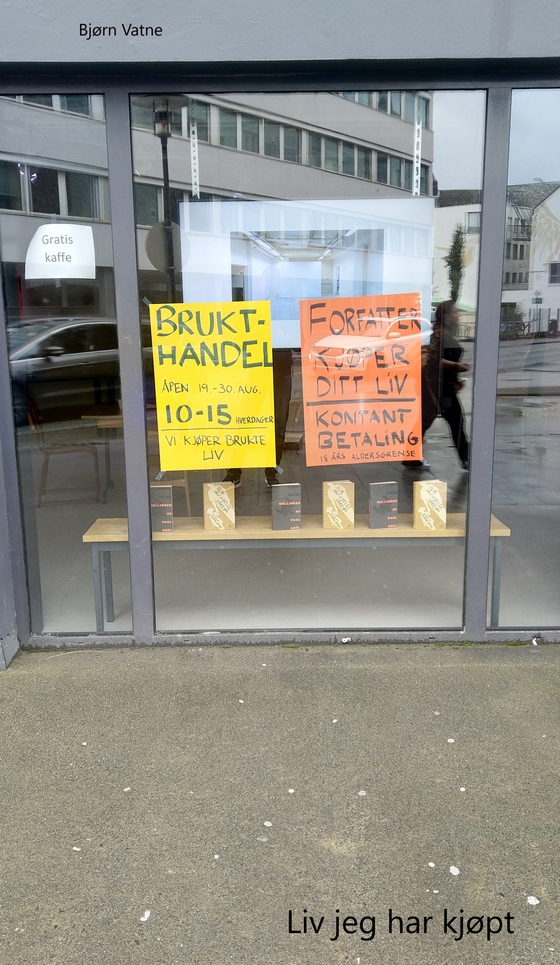 Bjørn Vatne
Gratis
kaffe
BRUKT-
HANDEL
ÅPEN 19.-30. AUG.
10-15 HVERDAGER
VI KJØPER BRUKTE
LIV
FORFATTER
KJØPER
DITT LIV
KONTANT
BETALING
18 ÅRS ALDERSGRENSE
Liv jeg har kjøpt